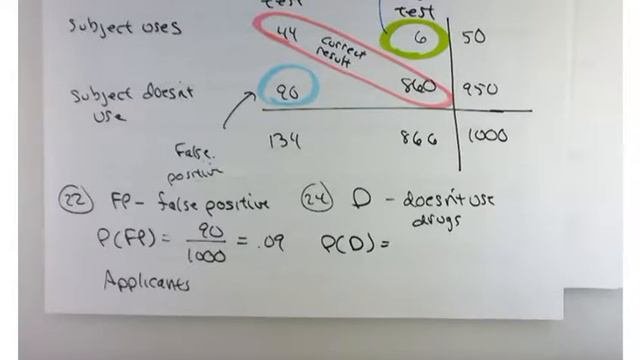 test
Subject uses 44 6 50
correct
result
Subject doesn't 90 860 950
use
False 134 866 1000
positive
22 FP - false positive 24 D - doesn't use
drugs
P(FP) = 90/1000 = .09 P(D) =
Applicants